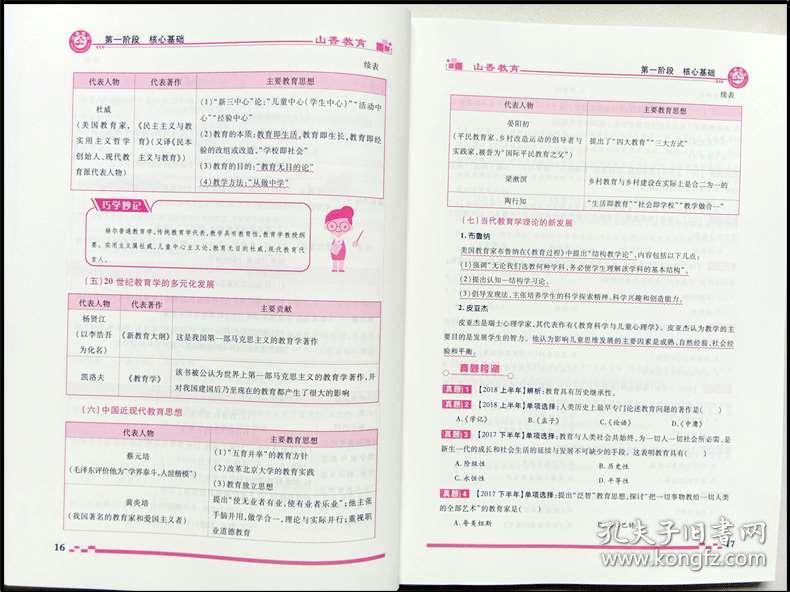 第一阶段 核心基础
山香教育
续表
代表人物 代表著作 主要教育思想
杜威
(美国教育家,
实用主义哲学
创始人、现代教
育派代表人物)
《民主主义与教
育》(又译《民本
主义与教育》)
(1)“新三中心”论:“儿童中心(学生中心)”“活动中
心”“经验中心”
(2)教育的本质:教育即生活,教育即生长,教育即经
验的改组或改造,“学校即社会”
(3)教育的目的:“教育无目的论”
(4)教学方法:“从做中学”
巧学妙记
赫尔普通教育学,传统教育学代表,教学具有教育性,教育学教授纲
要。实用主义属杜威,儿童中心主义论,教育无目的杜威,现代教育代
言人。
(五)20世纪教育学的多元化发展
代表人物 代表著作 主要贡献
杨贤江
(以李浩吾
为化名)
《新教育大纲》
这是我国第一部马克思主义的教育学著作
凯洛夫
《教育学》
该书被公认为世界上第一部马克思主义的教育学著作,并
对我国建国后乃至现在的教育都产生了很大的影响
(六)中国近现代教育思想
代表人物 主要教育思想
蔡元培
(毛泽东评价他为“学界泰斗、人世楷模”)
(1)“五育并举”的教育方针
(2)改革北京大学的教育实践
(3)教育独立思想
黄炎培
(我国著名的教育家和爱国主义者)
提出“使无业者有业,使有业者乐业”;他主张
手脑并用,做学合一,理论与实际并行;重视职
业道德教育
16
山香教育
第一阶段 核心基础
续表
代表人物 主要教育思想
晏阳初
(平民教育家、乡村改造运动的倡导者与
实践家,被誉为“国际平民教育之父”)
提出了“四大教育”“三大方式”
梁漱溟
乡村教育与乡村建设在实际上是合二为一的
陶行知
“生活即教育”“社会即学校”“教学做合一”
(七)当代教育学理论的新发展
1.布鲁纳
美国教育家布鲁纳在《教育过程》中提出“结构教学论”,内容包括以下几点:
(1)强调“无论我们选教何种学科,务必使学生理解该学科的基本结构”。
(2)提出认知—结构学习论。
(3)倡导发现法,主张培养学生的科学探索精神、科学兴趣和创造能力。
2.皮亚杰
皮亚杰是瑞士心理学家,其代表作有《教育科学与儿童心理学》。皮亚杰认为教学的主
要目的是发展学生的智力。他认为影响儿童思维发展的主要因素是成熟、自然经验、社会经
验和平衡。
真题检测
真题1 【2018上半年】辨析:教育具有历史继承性。
真题2 【2018上半年】单项选择:人类历史上最早专门论述教育问题的著作是( )
A.《学记》 B.《孟子》 C.《论语》 D.《中庸》
真题3 【2017下半年】单项选择:教育与人类社会共始终,为一切人、一切社会所必需,是
新生一代的成长和社会生活的延续与发展不可缺少的手段。这表明教育具有( )
A.阶级性 B.历史性
C.永恒性 D.平等性
真题4 【2017下半年】单项选择:提出“泛智”教育思想,探讨“把一切事物教给一切人类
的全部艺术”的教育家是( )
A.夸美纽斯
17
孔夫子旧书网